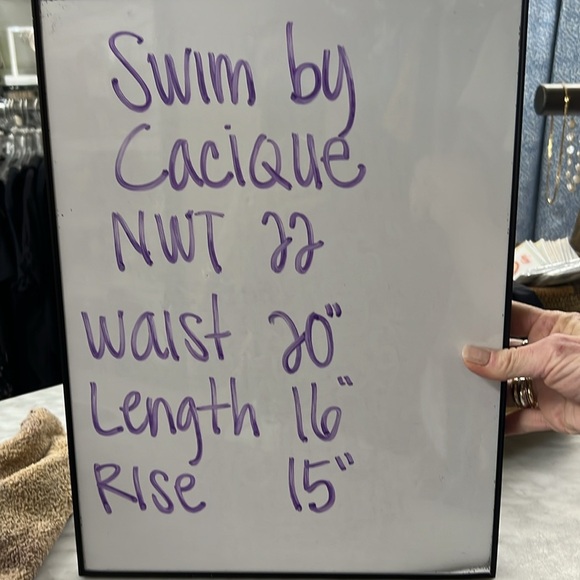 Swim by
Cacique
NWT 22
Waist 20"
Length 16"
Rise 15"